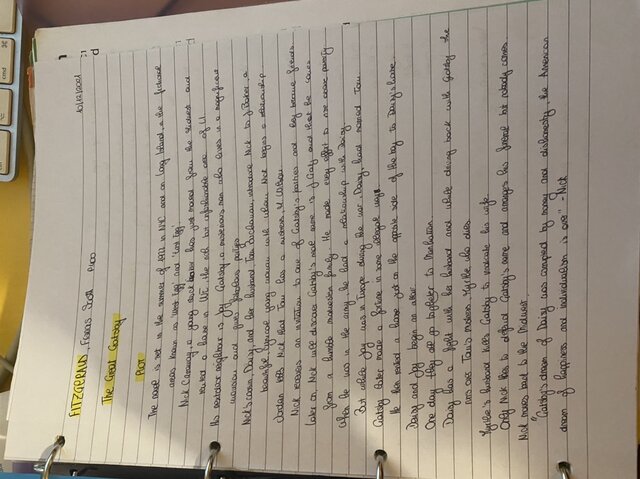 6/12/2021
FITZGERALD, Francis Scott
The Great Gatsby
PLOT
The novel is set in the summer of 1922 in NYC and on Long Island, in the fictional
areas known as West Egg and "East Egg".
Nick Carraway, a young stock trader has just moved from the Midwest and
rented a house in WE, the rich but unfashionable area of LI
His nextdoor neighbour is Jay Gatsby, a mysterious man who lives in a magnificent
mansion and gives fabulous parties
Nick's cousin, Daisy and her husband Tom Buchanan introduce Nick to J Baker, a
beautiful, cynical young woman with whom Nick begins a relationship
Jordan tells Nick that Tom has a mistress, M. Wilson
Nick receives an invitation to one of Gatsby's parties and they become friends.
Later on Nick will discover Gatsby's real name is J Gatz and that he comes
from a humble midwestern family. He made every effort to
After he was in the army he had a relationship with Daisy
But while Jay was in Europe during the war, Daisy had married Tom
Gatsby later made a fortune in some illegal ways
He then rented a house just on the opposite side of the bay to Daisy's house
Daisy and Jay begin an affair
One day they all go together to Manhattan
Daisy has a fight with her husband and while driving back with Gatsby she
runs over Tom's mistress. Myrtle dies
Myrtle's husband kills Gatsby to vindicate his wife.
Only Nick tries to defend Gatsby's name and arranges his funeral but nobody comes.
Nick moves back to the Midwest.
"Gatsby's dream of Daisy was corrupted by money and dishonesty, the American
dream of happiness and individualism is over" - Nick